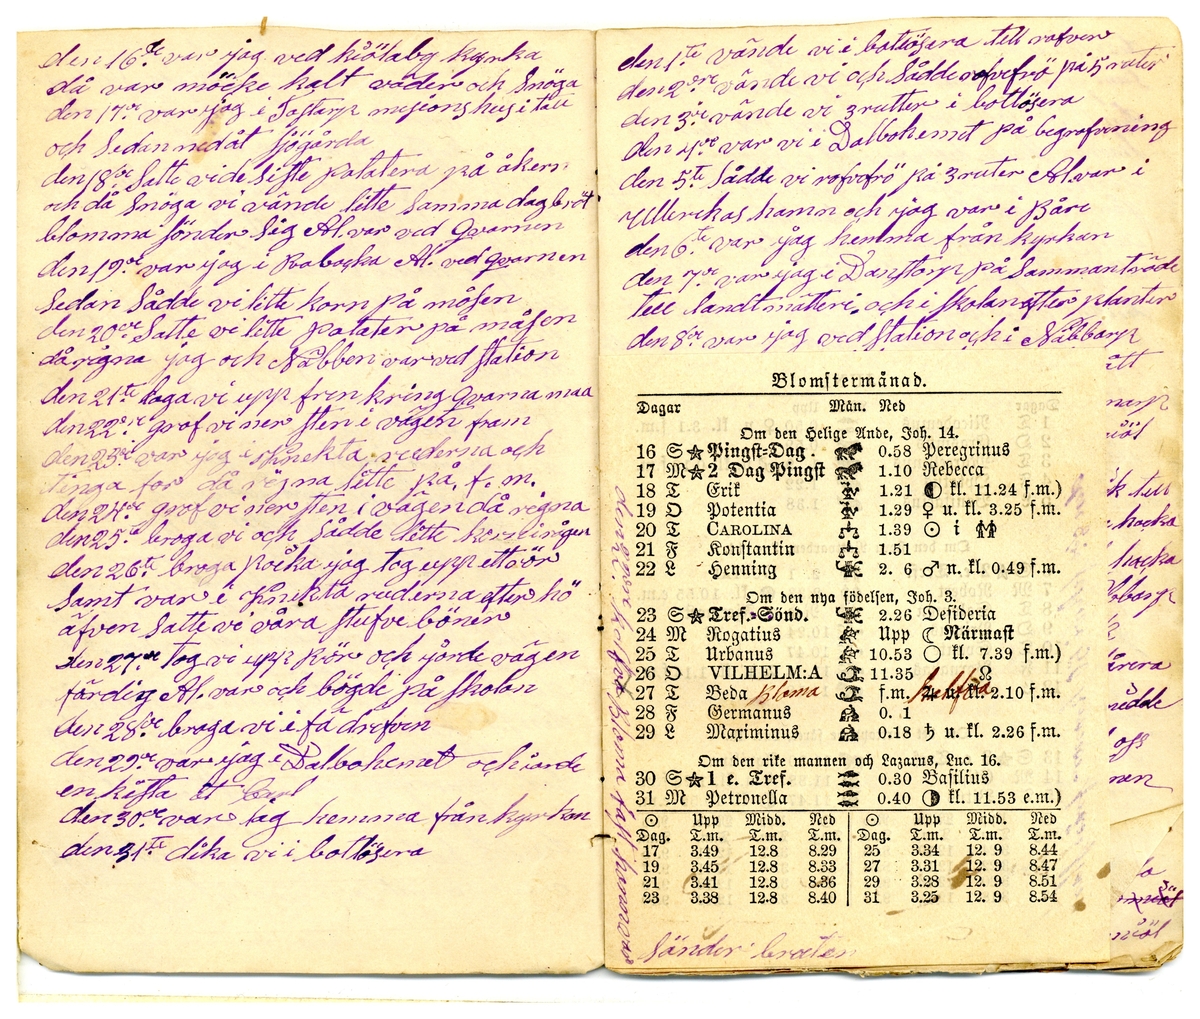 den 16de var jag ved kiölaby kyrka
då var möcke kalt väder och Snöga
den 17de var jag i Tostarp misions hus i täll
och Sedan nedåt Sjögårda
den 18de Satte vi de Siste patatera på åkern
och då Snöga vi vände litte Samma dag bröt
blomma Sönder Sig Al. var ved qvarnen
den 19de var jag i Al. ved qvarnen
Sedan Sådde vi litte korn på måsen
den 20de Satte vi litte patater på måsen
då rägna jag och Nabben var ved Station
den 21te toga vi upp fren kring qvarna
den 22de grof vi ner sten i vägen fram
den 23de var jag i Knekta rederna och
tinga for då rägna litte på. f. m.
den 24de grof vi ner sten i vägen då rägna
den 25te broga vi och Sådde litte korn i rågen
den 26te broga jag tog upp ett ör
Samt var i Knekta ruderna efter hö
äfven Satte vi våra stufve böner
den 27de tog vi upp ör och jorde vägen
färdig Al. var och bögde på skolan
den 28de broga vi i fädrefven
den 29de var jag i Dalbohemet och jorde
en kista åt Carl
den 30de var jag hemma från kyrkan
den 31te dika vi i bottösera
den 1te vände vi i bottösera till rofver
den 2dre vände vi och Sådde rofvefrö på 5 ruter
den 3de vände vi 3 rutter i bottösera
den 4de var vi i Dalbohemet på begrafvning
den 5te Sådde vi rofvefrö på 3 ruter Al. var i
Ullerekas hamn och jag var i Båre
den 6te var jag hemma från kyrkan
den 7de var jag i Danstorp på Sammanträde
till landtmäteri och i skolan efter planter
den 8de var jag ved Station och i Nabbarp
Blomstermånad.
Dagar Mån. Ned
Om den Helige Ande, Joh. 14.
16 S ★ Pingst-Dag. 0.58 Peregrinus
17 M ★ 2 Dag Pingst 1.10 Rebecca
18 T Erik 1.21 ◐ kl. 11.24 f.m.)
19 O Potentia 1.29 ♀ u. kl. 3.25 f.m.
20 T CAROLINA 1.39 ☉ i ♊
21 F Konstantin 1.51
22 L Henning 2. 6 ♂ n. kl. 0.49 f.m.
Om den nya födelsen, Joh. 3.
23 S ★ Tref.-Sönd. 2.26 Desideria
24 M Rogatius Upp ☾ Närmast
25 T Urbanus 10.53 ○ kl. 7.39 f.m.)
26 O VILHELM:A 11.35 ☊
27 T Beda bloma f.m. ♃ u. kl. 2.10 f.m.
28 F Germanus 0. 1
29 L Maximinus 0.18 ♄ u. kl. 2.26 f.m.
Om den rike mannen och Lazarus, Luc. 16.
30 S ★ 1 e. Tref. 0.30 Basilius
31 M Petronella 0.40 ◑ kl. 11.53 e.m.)
☉ Upp Midd. Ned ☉ Upp Midd. Ned
Dag. T.m. T.m. T.m. Dag. T.m. T.m. T.m.
17 3.49 12.8 8.29 25 3.34 12. 9 8.44
19 3.45 12.8 8.33 27 3.31 12. 9 8.47
21 3.41 12.8 8.36 29 3.28 12. 9 8.51
23 3.38 12.8 8.40 31 3.25 12. 9 8.54
Sönder braten